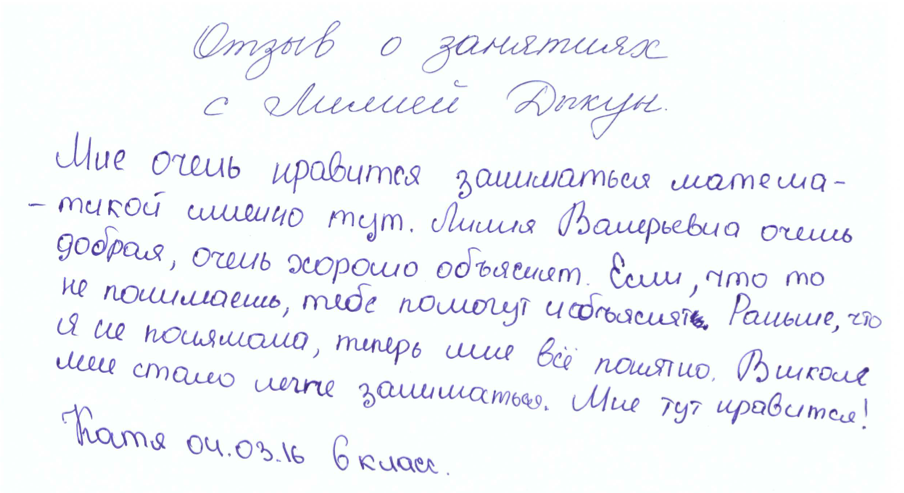 Отзыв о занятиях
с Лилией Дыкун.
Мне очень нравится заниматься матема-
-тикой именно тут. Лилия Валерьевна очень
добрая, очень хорошо объясняет. Если, что то
не понимаешь, тебе помогут и объяснять. Раньше, что
я не понимала, теперь мне всё понятно. В школе
мне стало легче заниматься. Мне тут нравится!
Катя 04.03.16 6 класс.